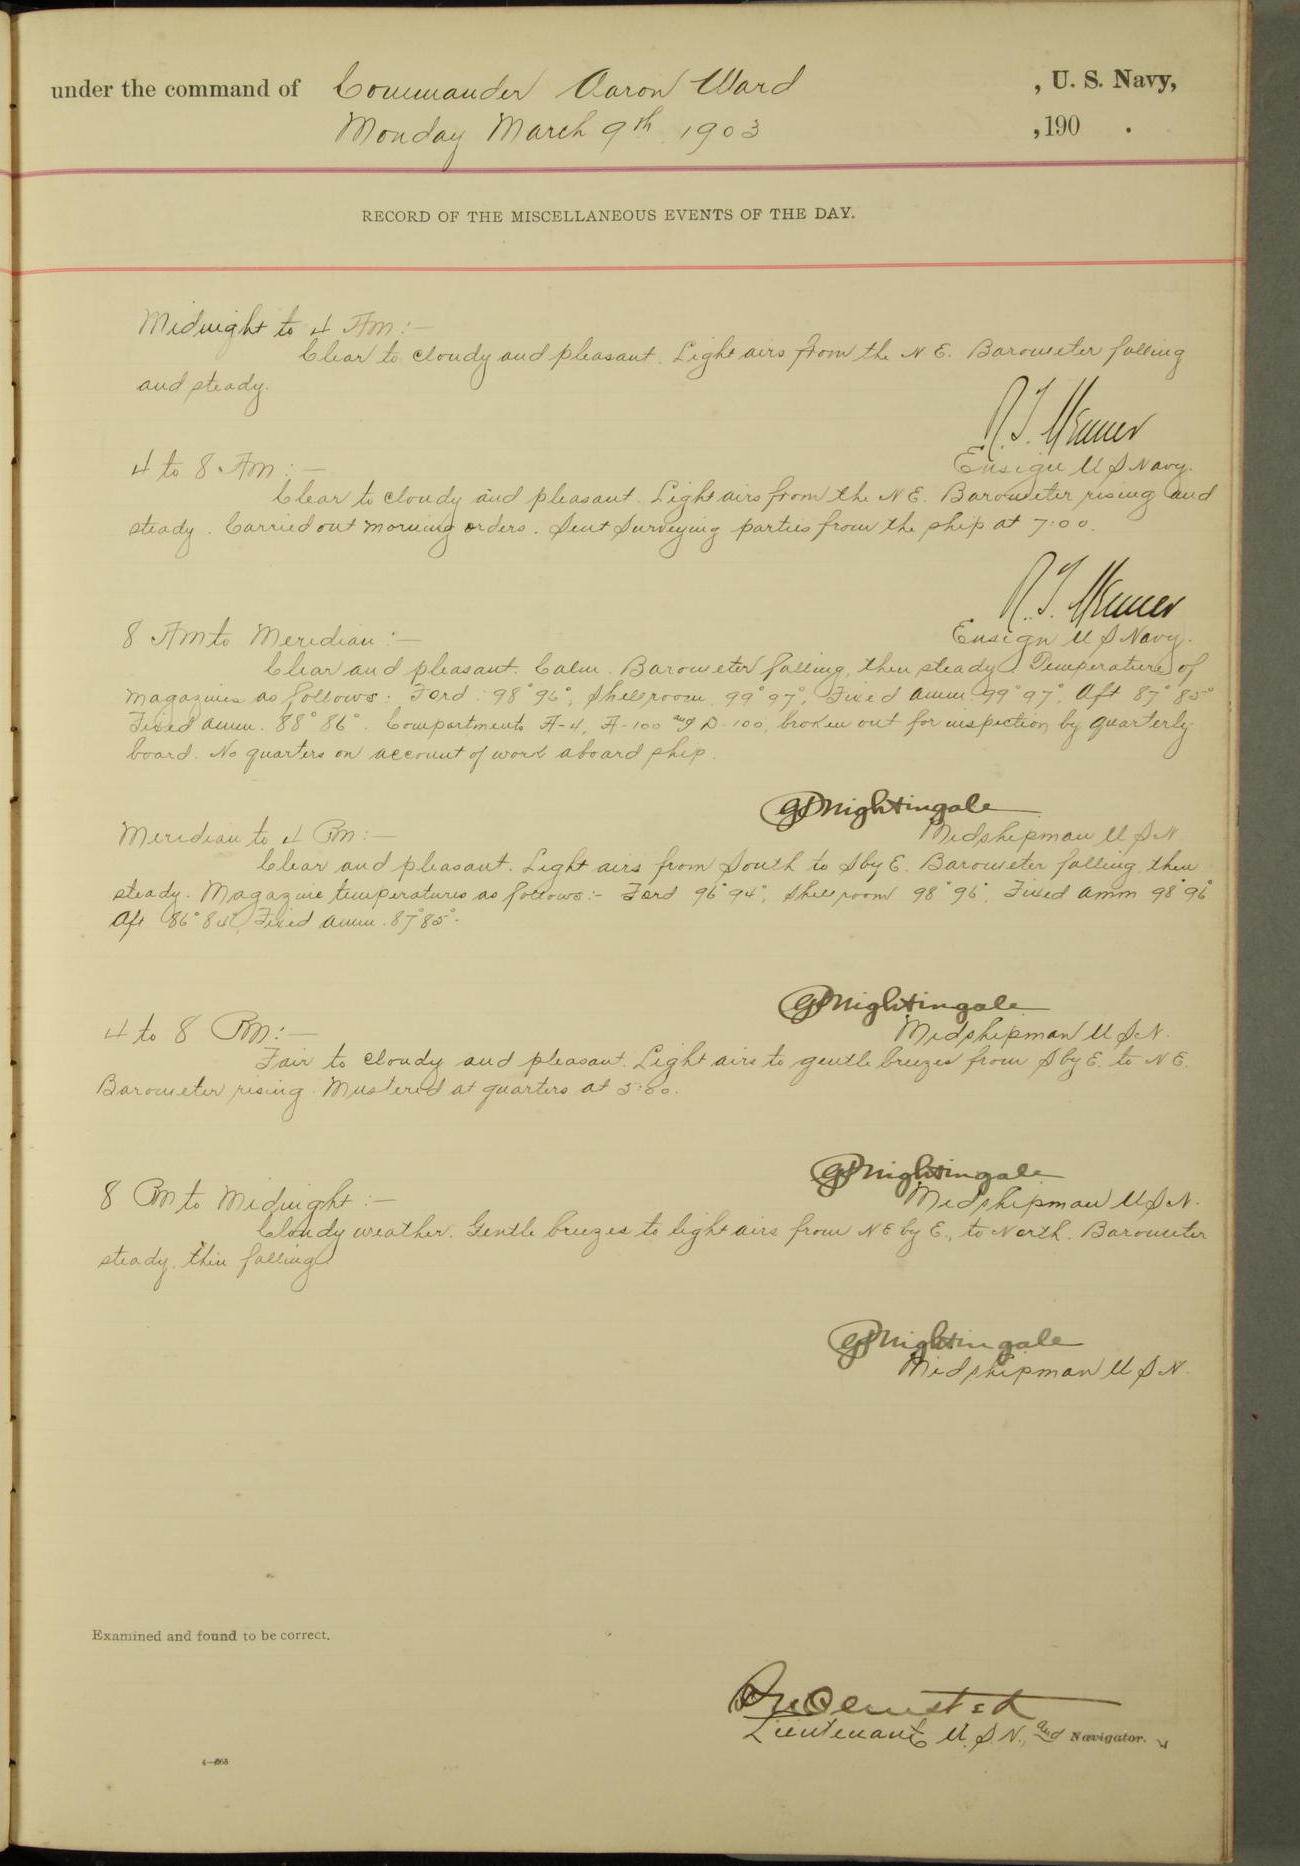 under the command of Commander Aaron Ward , U. S. Navy,
Monday March 9th 1903 , 190 .
RECORD OF THE MISCELLANEOUS EVENTS OF THE DAY.
Midnight to 4 AM:—
Clear to cloudy and pleasant. Light airs from the N E. Barometer falling
and steady.
Ensign U S Navy.
4 to 8 AM:—
Clear to cloudy and pleasant. Light airs from the N E. Barometer rising and
steady. Carried out morning orders. Sent Surveying parties from the ship at 7:00.
Ensign U S Navy.
8 AM to Meridian:—
Clear and pleasant. Calm. Barometer falling, then steady. Temperature of
magazines as follows: Ford 98° 96°, Shellroom 99° 97°, Fixed amm. 99° 97°, Aft 87° 85°
Fixed amm. 88° 86°. Compartments A-4, A-100 and D-100, broken out for inspection by quarterly
board. No quarters on account of work aboard ship.
Nightingale
Midshipman U S N.
Meridian to 4 PM:—
Clear and pleasant. Light airs from South to S by E. Barometer falling then
steady. Magazine temperatures as follows:- Ford 96° 94°, Shellroom 98° 96°, Fixed amm 98° 96°
Aft 86° 84°, Fixed amm. 87° 85°.
Nightingale
Midshipman U S N.
4 to 8 PM:—
Fair to cloudy and pleasant. Light airs to gentle breezes from S by E. to N E.
Barometer rising. Mustered at quarters at 5:30.
Nightingale
Midshipman U S N.
8 PM to Midnight:—
Cloudy weather. Gentle breezes to light airs from N E by E., to North. Barometer
steady, then falling
Nightingale
Midshipman U S N.
Examined and found to be correct.
Olmsted
Lieutenant U. S. N., and Navigator.